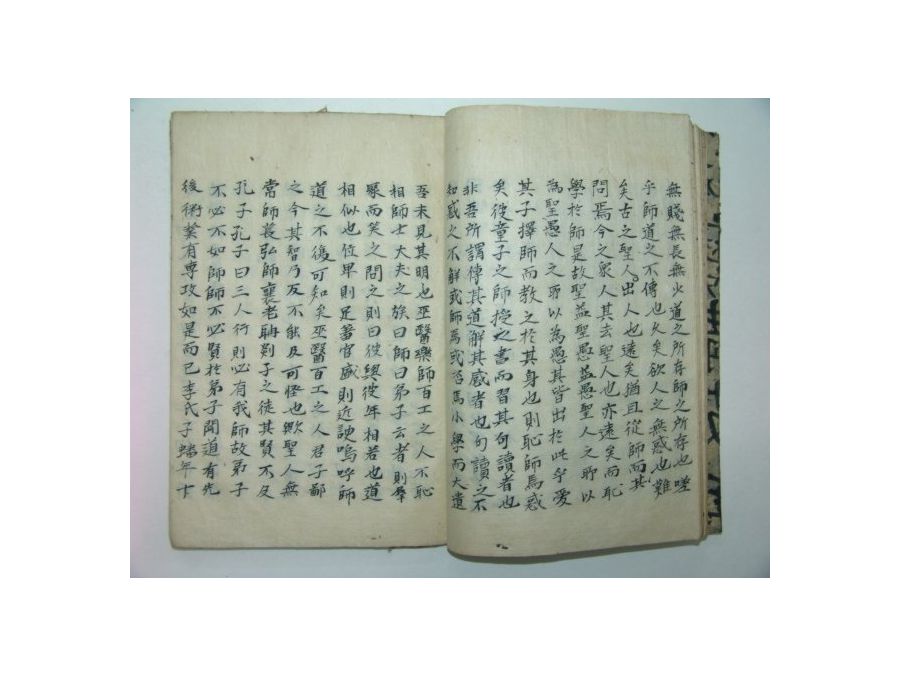 無賤無長無少道之所存師之所存也嗟
乎師道之不傳也久矣欲人之無惑也難
矣古之聖人出人也遠矣猶且從師而其
問焉今之衆人其去聖人也亦遠矣而恥
學於師是故聖益聖愚益愚聖人之所以
為聖愚人之所以為愚其皆出於此乎愛
其子擇師而教之於其身也則恥師焉惑
矣彼童子之師授之書而習其句讀者也
非吾所謂傳其道解其惑者也句讀之不
知惑之不解或師焉或否焉小學而大遺
吾未見其明也巫醫樂師百工之人不恥
相師士大夫之族曰師曰弟子云者則羣
聚而笑之問之則曰彼與彼年相若也道
相似也位卑則足羞官盛則近諛嗚呼師
道之不復可知矣巫醫百工之人君子鄙
之今其智乃反不能及可怪也歟聖人無
常師萇弘師襄老聃郯子之徒其賢不及
孔子孔子曰三人行則必有我師故弟子
不必不如師師不必賢於弟子聞道有先
後術業有專攻如是而已李氏子蟠年十